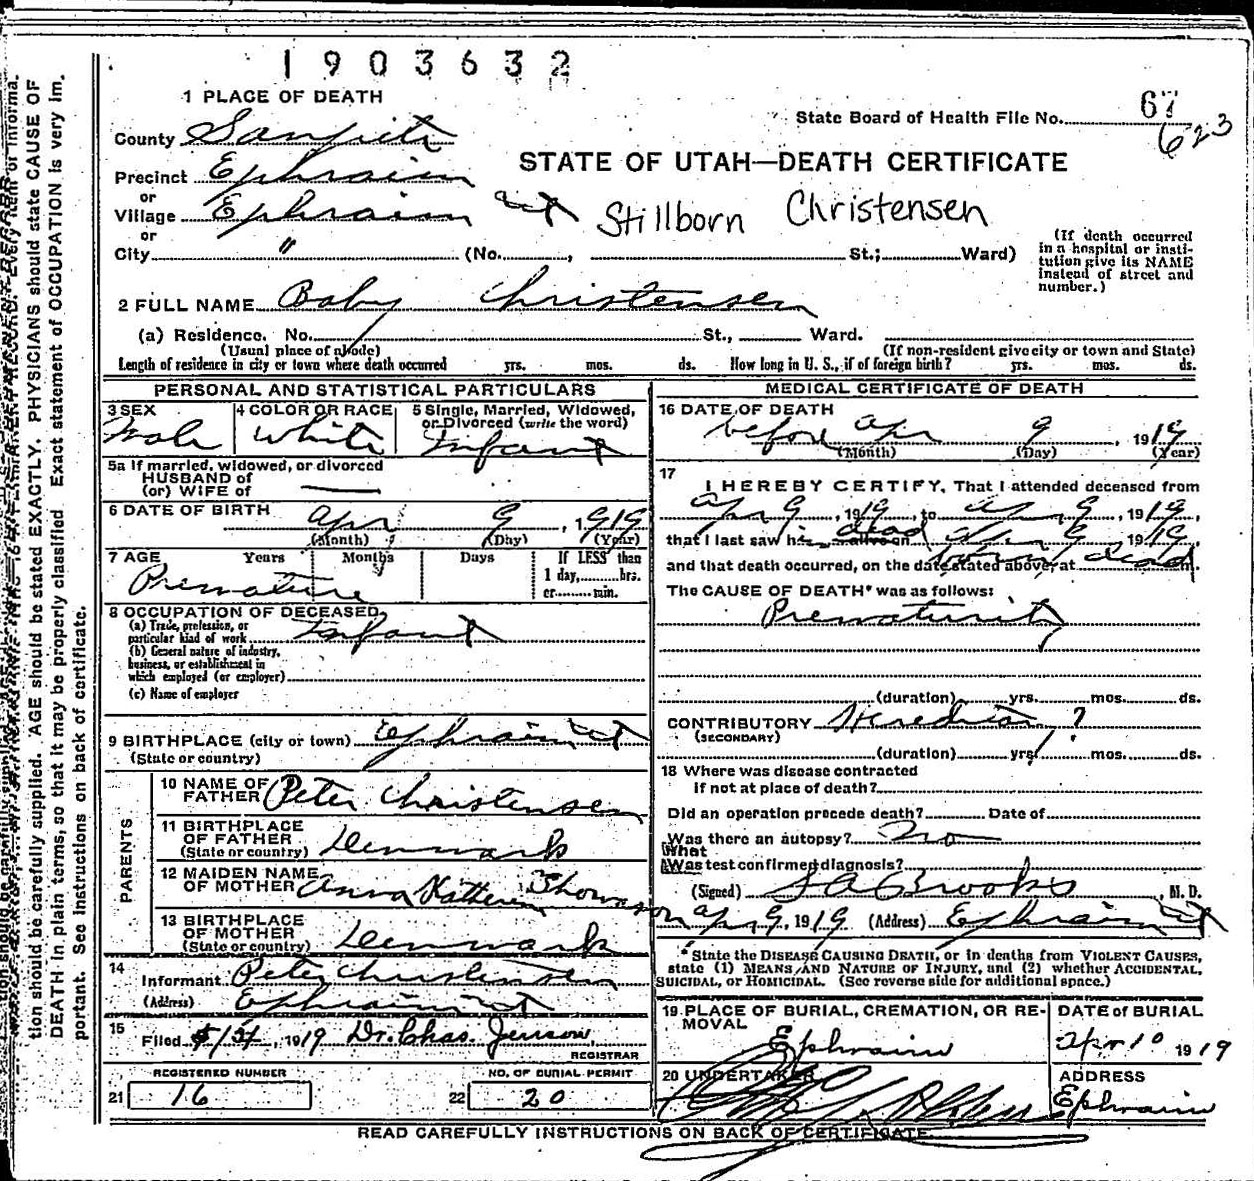 1903632
1 PLACE OF DEATH
State Board of Health File No. 67
623
County Sanpete
STATE OF UTAH—DEATH CERTIFICATE
Precinct Ephraim
or
Village Ephraim Ut
Stillborn Christensen
or
City " (No. , St.; Ward)
(If death occurred
in a hospital or insti-
tution give its NAME
instead of street and
number.)
2 FULL NAME Baby Christensen
(a) Residence. No. St., Ward.
(Usual place of abode) (If non-resident give city or town and State)
Length of residence in city or town where death occurred yrs. mos. ds. How long in U. S., if of foreign birth? yrs. mos. ds.
PERSONAL AND STATISTICAL PARTICULARS
3 SEX 4 COLOR OR RACE 5 Single, Married, Widowed,
or Divorced (write the word)
Male White Infant
5a If married, widowed, or divorced
HUSBAND of
(or) WIFE of
6 DATE OF BIRTH
Apr 9, 1919
(Month) (Day) (Year)
7 AGE Years Months Days If LESS than
1 day, hrs.
or min.
Premature
8 OCCUPATION OF DECEASED
(a) Trade, profession, or
particular kind of work Infant
(b) General nature of industry,
business, or establishment in
which employed (or employer)
(c) Name of employer
9 BIRTHPLACE (city or town) Ephraim Ut
(State or country)
PARENTS
10 NAME OF
FATHER Peter Christensen
11 BIRTHPLACE
OF FATHER
(State or country) Denmark
12 MAIDEN NAME
OF MOTHER Anna Thomason
13 BIRTHPLACE
OF MOTHER
(State or country) Denmark
14
Informant Peter Christensen
(Address) Ephraim Ut
15
Filed 1919 Dr. Chas. Jenson,
REGISTRAR
REGISTERED NUMBER NO. OF BURIAL PERMIT
21 16 22 20
MEDICAL CERTIFICATE OF DEATH
16 DATE OF DEATH
before Apr 9, 1919
(Month) (Day) (Year)
17
I HEREBY CERTIFY, That I attended deceased from
Apr 9, 1919, to Apr 9, 1919,
that I last saw h dead alive on Apr 9 1919,
and that death occurred, on the date stated above, at born dead m.
The CAUSE OF DEATH* was as follows:
Prematurity
(duration) yrs. mos. ds.
CONTRIBUTORY ?
(SECONDARY)
(duration) yrs. mos. ds.
18 Where was disease contracted
if not at place of death?
Did an operation precede death? Date of
Was there an autopsy? No
What
Was test confirmed diagnosis?
(Signed) Brooks, M. D.
Apr 9, 1919 (Address) Ephraim Ut
*State the DISEASE CAUSING DEATH, or in deaths from VIOLENT CAUSES,
state (1) MEANS AND NATURE OF INJURY, and (2) whether ACCIDENTAL,
SUICIDAL, or HOMICIDAL. (See reverse side for additional space.)
19 PLACE OF BURIAL, CREMATION, OR RE-
MOVAL
Ephraim
DATE of BURIAL
Apr 10 1919
20 UNDERTAKER
ADDRESS
Ephraim
READ CAREFULLY INSTRUCTIONS ON BACK OF CERTIFICATE.
tion should be carefully supplied. AGE should be stated EXACTLY. PHYSICIANS should state CAUSE OF
DEATH in plain terms, so that it may be properly classified. Exact statement of OCCUPATION is very im-
portant. See instructions on back of certificate.